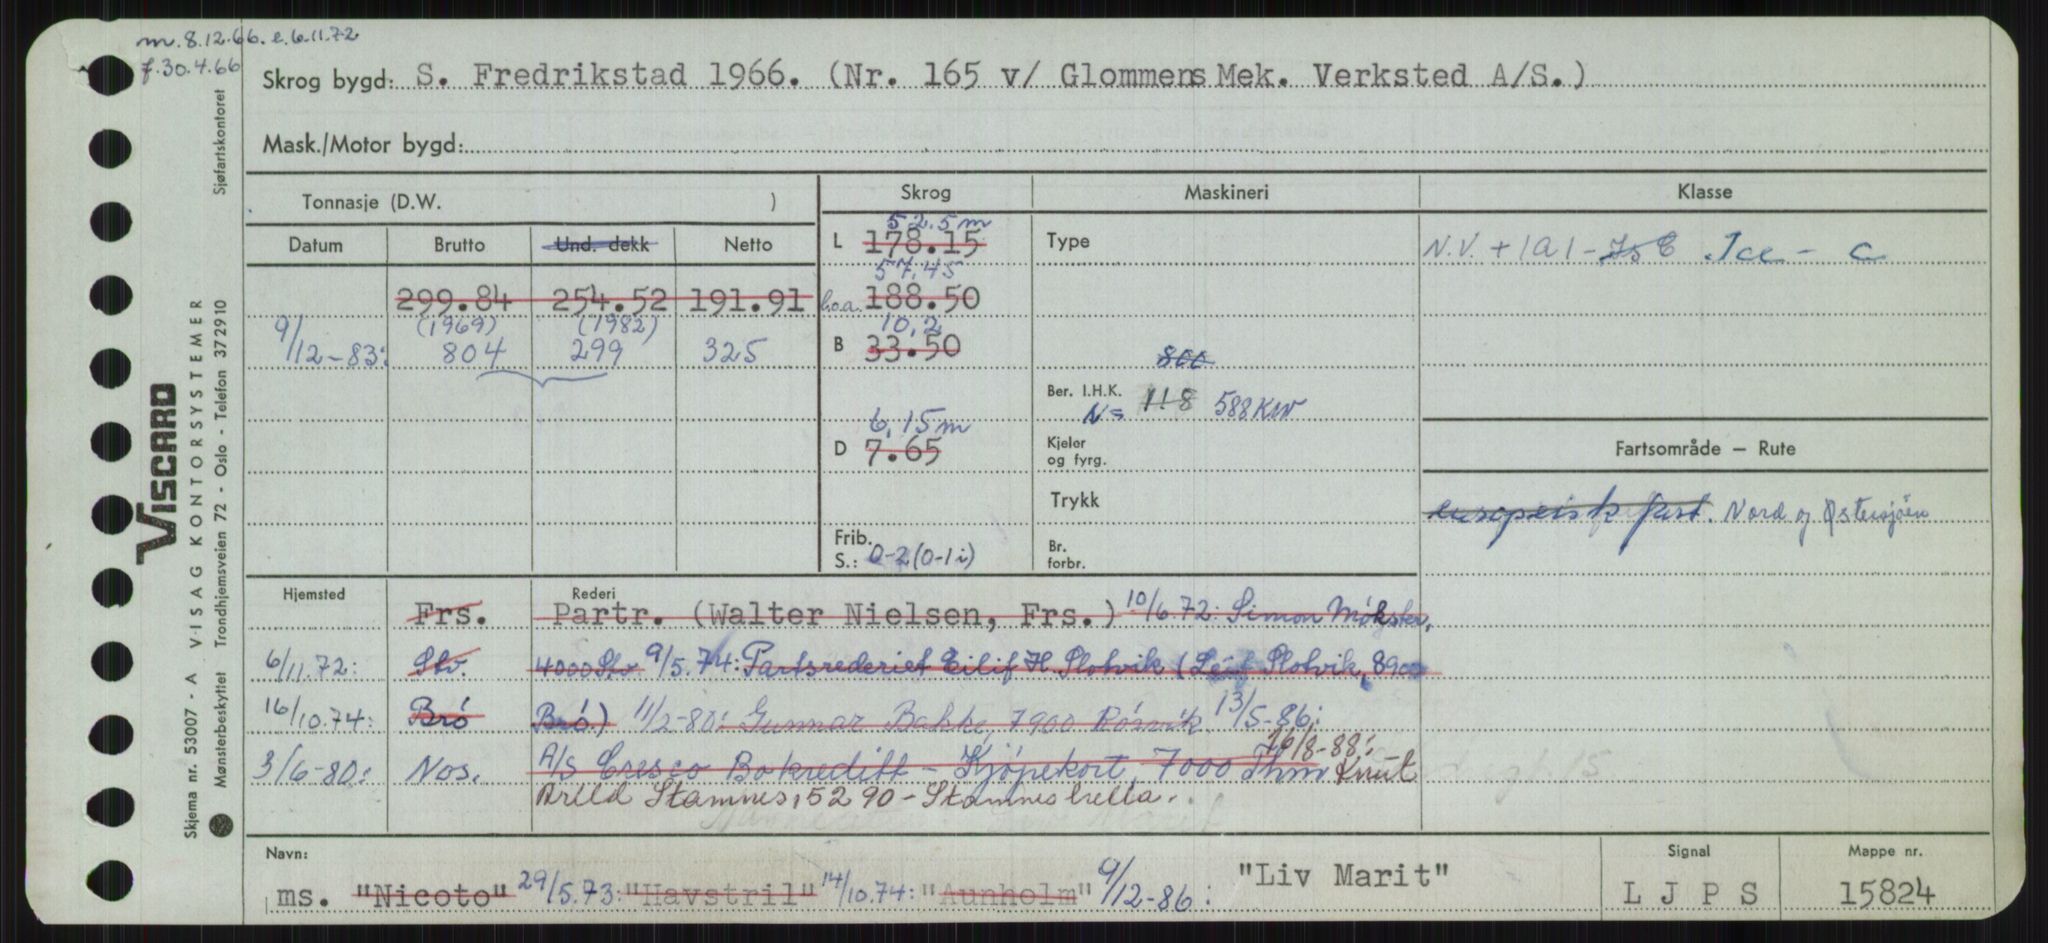 m. 8.12.66. e. 6.11.72
f. 30.4.66
Skrog bygd: S. Fredrikstad 1966. (Nr. 165 v/ Glommens Mek. Verksted A/S.)
Mask./Motor bygd:
Tonnasje (D.W. )
Skrog
Maskineri
Klasse
Datum Brutto Und. dekk Netto
52.5 m
L 178.15
Type
N.V. + 1A1 - Is C Ice - C
57,45
299.84 254.52 191.91
b.o.a. 188.50
(1969) (1982)
10,2
9/12-83: 804 299 325
B 33.50
800
Ber. I.H.K.
N= 118 588 KW
6,15 m
D 7.65
Kjeler
og fyrg.
Fartsområde – Rute
Trykk
europeisk fart. Nord og Østersjöen
Frib.
S.: 0-2 (0-1 i)
Br.
forbr.
Hjemsted
Rederi
Frs. Partr. (Walter Nielsen, Frs.) 10/6.72: Simon Møkster,
6/11.72: Stv. 4000 Stv 9/5.74: Partsrederiet Eilif H. Slotvik (Leif Slotvik, 8900
16/10.74: Brö Brö.) 11/2-80: Gunnar Bakke, 7900 Rörvik 13/5-86:
3/6-80: Nos. A/S Cresco Bokreditt - Kjöpekort, 7000 Thm 16/8-88: Knut
Arild Stamnes, 5290 - Stamneshella.
Navn:
ms. "Nicoto" 29/5.73: "Havstril" 14/10.74: "Aunholm" 9/12-86: "Liv Marit"
Signal
L J P S
Mappe nr.
15824
Sjøfartskontoret
VISCARD
VISAG KONTORSYSTEMER
Trondhjemsveien 72 - Oslo - Telefon 372910
Skjema nr. 53007 - A
Mønsterbeskyttet